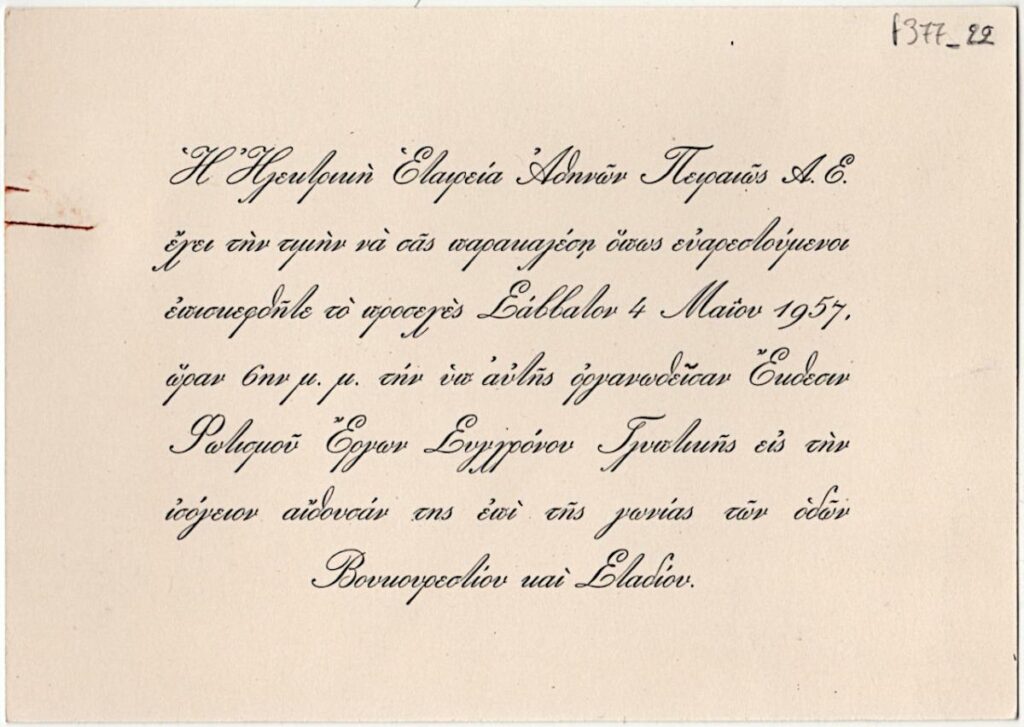 f377_22
Ἡ Ἠλεκτρικὴ Ἑταιρεία Ἀθηνῶν Πειραιῶς Α. Ε.
ἔχει τὴν τιμὴν νὰ σᾶς παρακαλέσῃ ὅπως εὐαρεστούμενοι
ἐπισκεφθῆτε τὸ προσεχὲς Σάββατον 4 Μαΐου 1957,
ὥραν 6ην μ. μ. τὴν ὑπ' αὐτῆς ὀργανωθεῖσαν Ἔκθεσιν
Φωτισμοῦ Ἔργων Συγχρόνου Γλυπτικῆς εἰς τὴν
ἰσόγειον αἴθουσάν της ἐπὶ τῆς γωνίας τῶν ὁδῶν
Βουκουρεστίου καὶ Σταδίου.